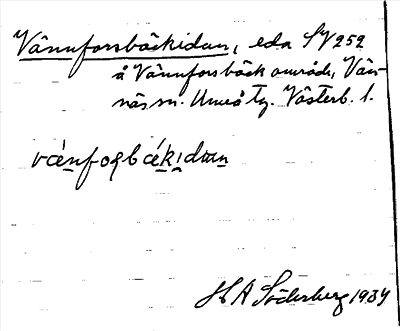 Vännforsbäckidan, eda SV 252
å Vännforsbäck område, Vän-
näs sn. Umeå tg. Västerb. l.
væ´nfoꞎbǽkịdan
H A Söderberg 1934